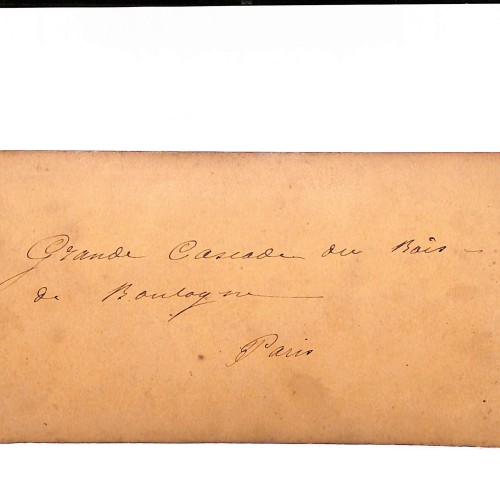 Grande Cascade du Bois –
de Boulogne —
Paris